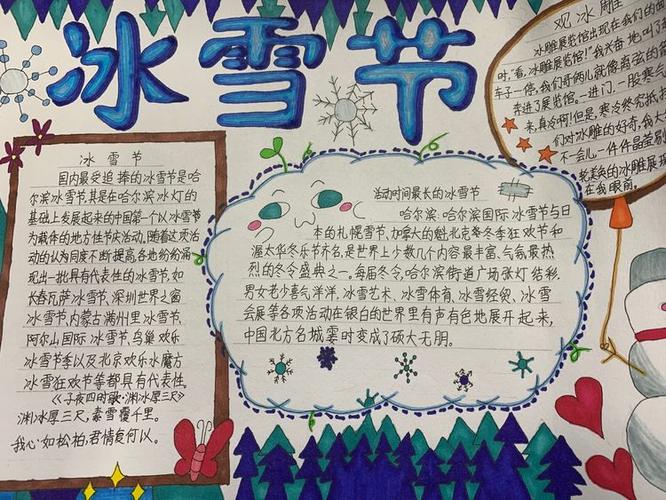 冰雪节
冰雪节
国内最受追捧的冰雪节是哈
尔滨冰雪节,其是在哈尔滨冰灯的
基础上发展起来的中国第一个以冰雪节
为载体的地方性节庆活动。随着这项活
动的认为同度不断提高各地纷纷涌
现出一批具有代表性的冰雪节,如
长春瓦萨冰雪节、深圳世界之窗
冰雪节、内蒙古满州里冰雪节、
阿尔山国际冰雪节、鸟巢欢乐
冰雪节季以及北京欢乐水魔方
冰雪狂欢节等都具有代表性。
《子夜四时歌·渊冰厚三尺》
渊冰厚三尺,素雪覆千里。
我心如松柏,君情复何以。
活动时间最长的冰雪节
哈尔滨·哈尔滨国际冰雪节与日
本的札幌雪节、加拿大的魁北克冬季狂欢节和
渥太华冬乐节齐名,是世界上少数几个内容最丰富、气氛最热
烈的冬令盛典之一,每届冬令,哈尔滨街道广场张灯结彩,
男女老少喜气洋洋,冰雪艺术、冰雪体育、冰雪经贸、冰雪
会展等各项活动在银白的世界里有声有色地展开起来,
中国北方名城霎时变成了硕大无朋。
观冰雕
冰雕展览馆出现在我们的
时,"看,冰雕展览馆!"我兴奋地叫
车子一停,我们哥俩儿就像离弦的
奔进了展览馆。一进门,一股寒
来,真冷啊!但是,寒冷终究抵
们对冰雕的好奇,我
不一会儿一件件晶莹
美的冰雕展
在我眼前。